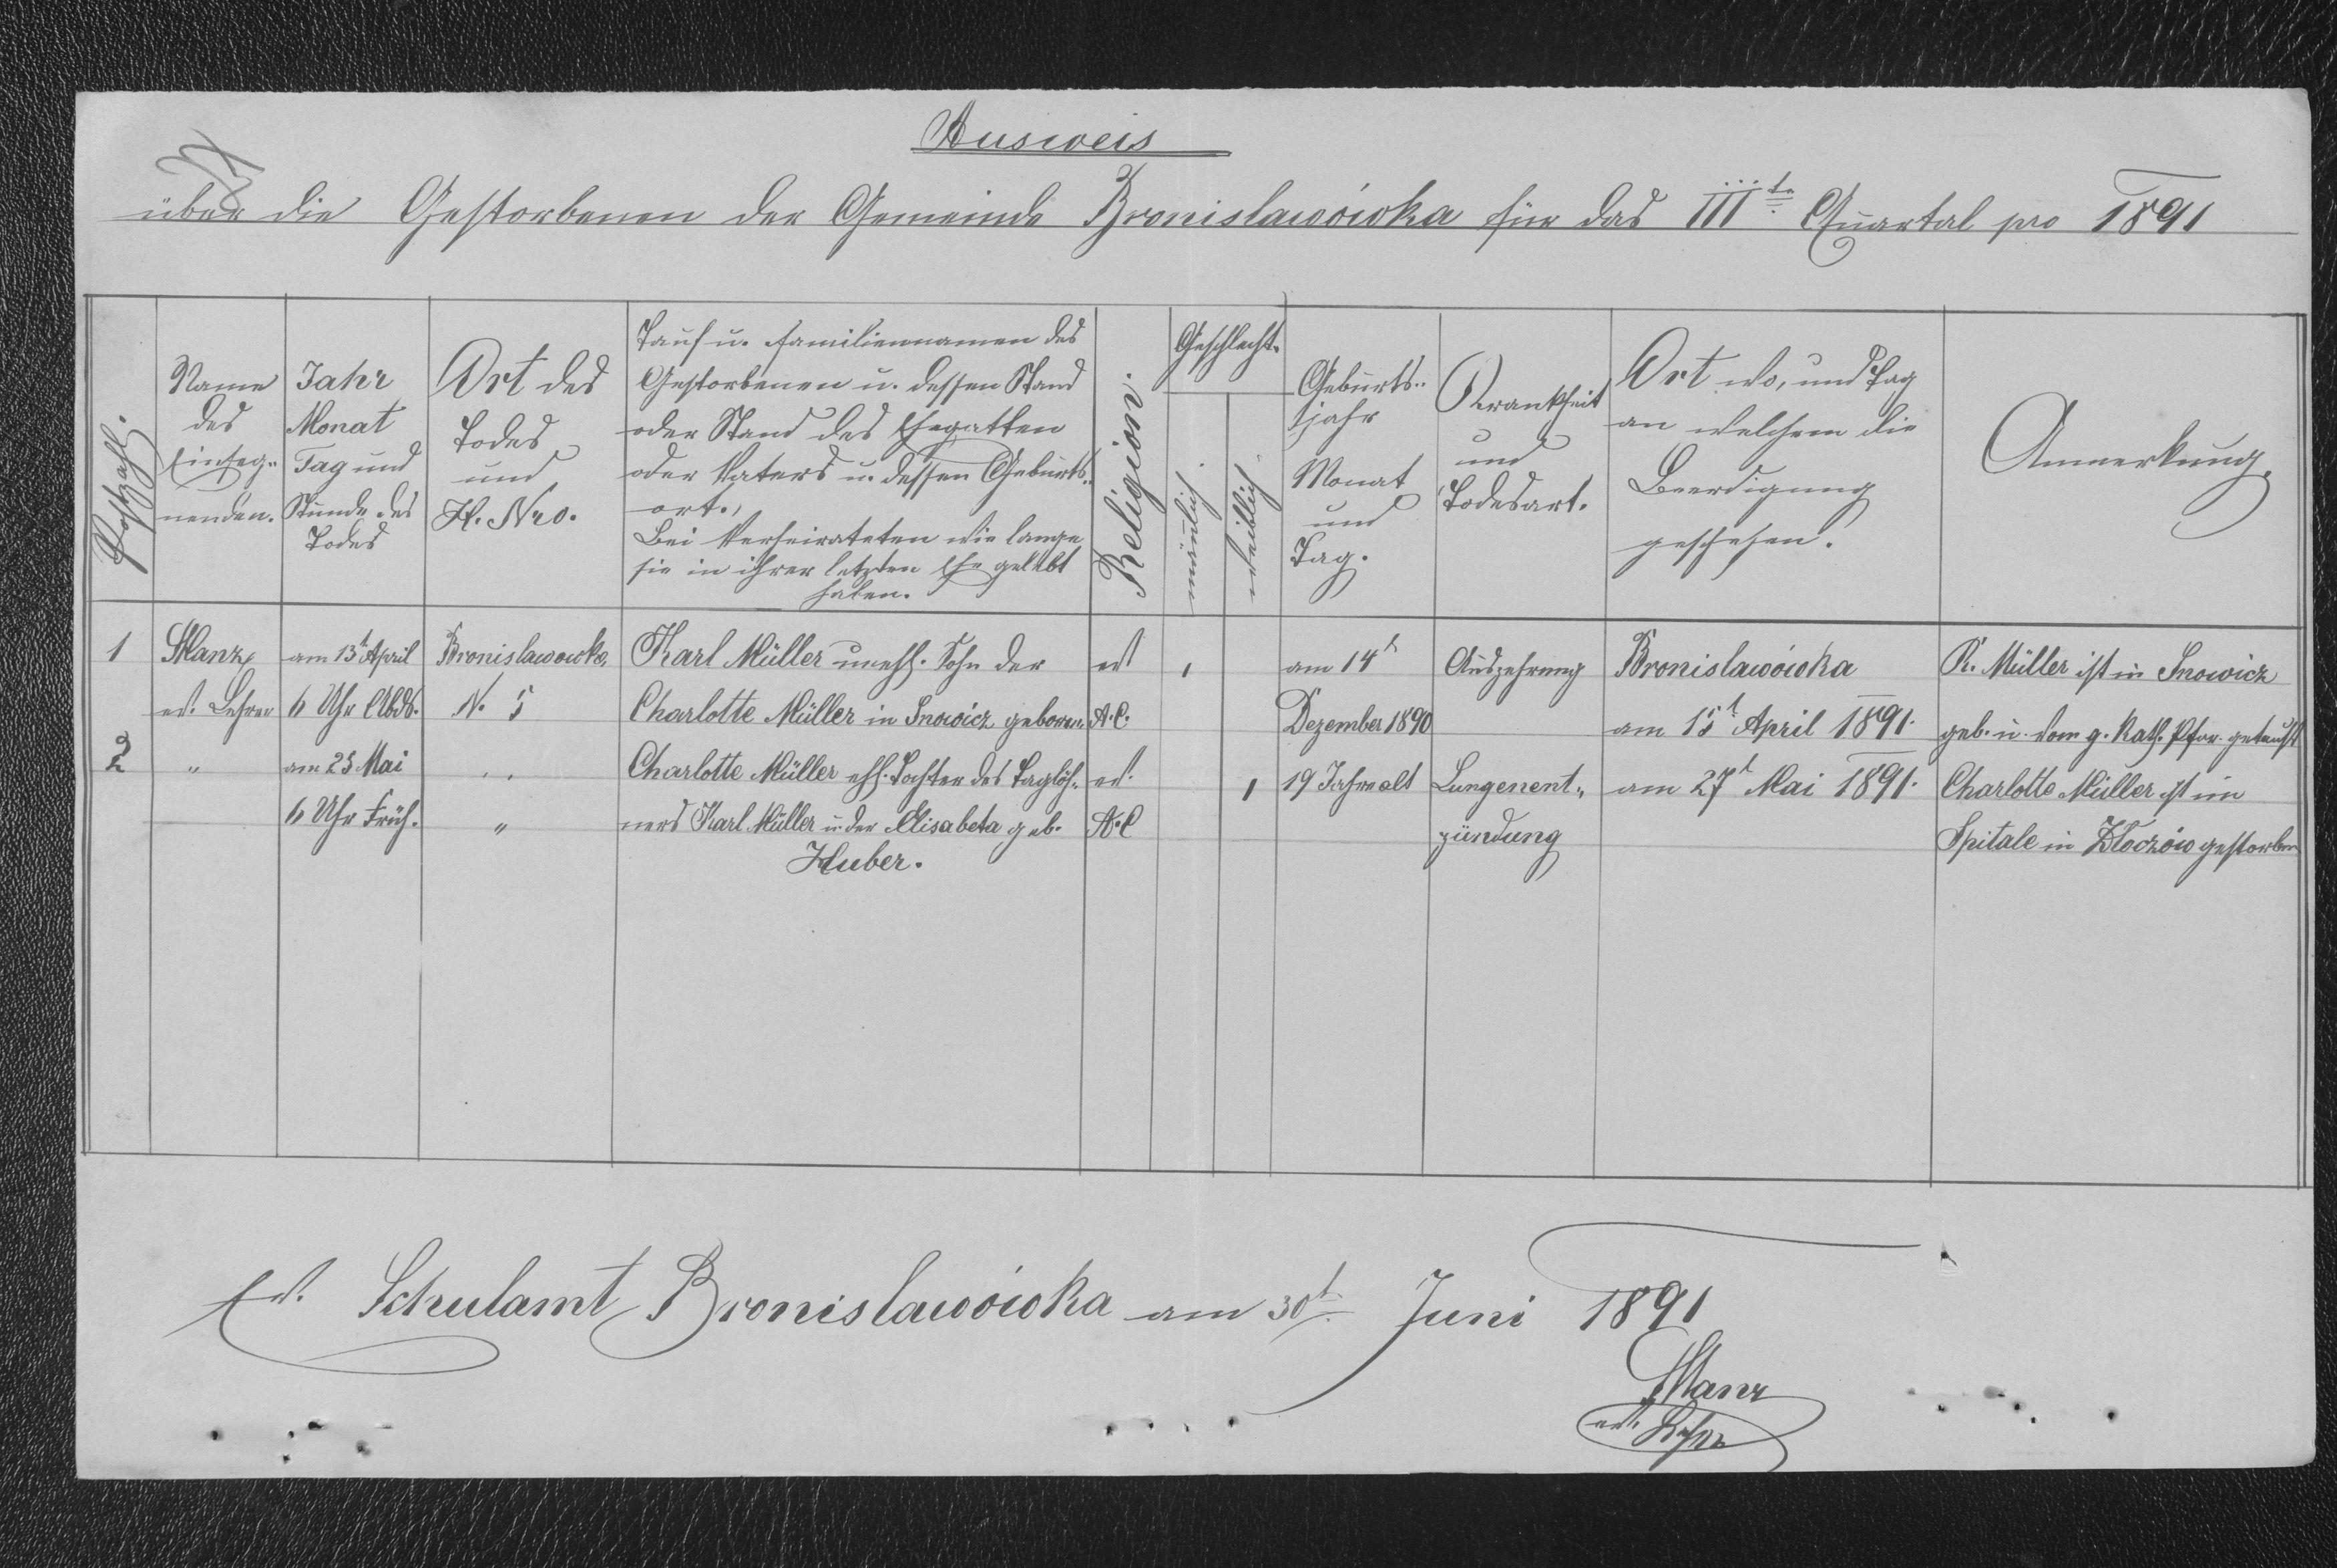 Ausweis
über die Gestorbenen der Gemeinde Bronislawówka für das IIIte Quartal pro 1891
Postzahl.
Name
des
Einseg-
nenden.
Jahr
Monat
Tag und
Stunde des
Todes
Ort des
Todes
und
H. Nro.
Tauf u. Familiennamen des
Gestorbenen u. dessen Stand
oder Stand des Ehegatten
oder Vaters u. dessen Geburts-
ort.,
Bei Verheirateten wie lange
sie in ihrer letzten Ehe gelebt
haben.
Religion.
Geschlecht.
männlich.
weiblich.
Geburts-
jahr
Monat
und
Tag.
Krankheit
und
Todesart.
Ort wo, und Tag
an welchem die
Beerdigung
geschehen.
Anmerkung.
1 Manz am 13t April Bronislawowka, Karl Müller unehl. Sohn der ev. 1 am 14t Auszehrung Bronislawówka K. Müller ist in Snowicz
ev. Lehrer 6 Uhr Abds. N. 5 Charlotte Müller in Snowicz geboren. A.C. Dezember 1890 am 15t April 1891. geb. u. vom g. kath. Pfar. getauft
2 " am 25 Mai " Charlotte Müller ehl. Tochter des Taglöh- ev. 1 19 Jahre alt Lungenent- am 27t Mai 1891. Charlotte Müller ist im
6 Uhr Früh. " ners Karl Müller u. der Elisabeta geb. A.C zündung Spitale in Złoczów gestorben
Huber.
Ev. Schulamt Bronislawówka am 30t Juni 1891
Manz
ev. Lehrer